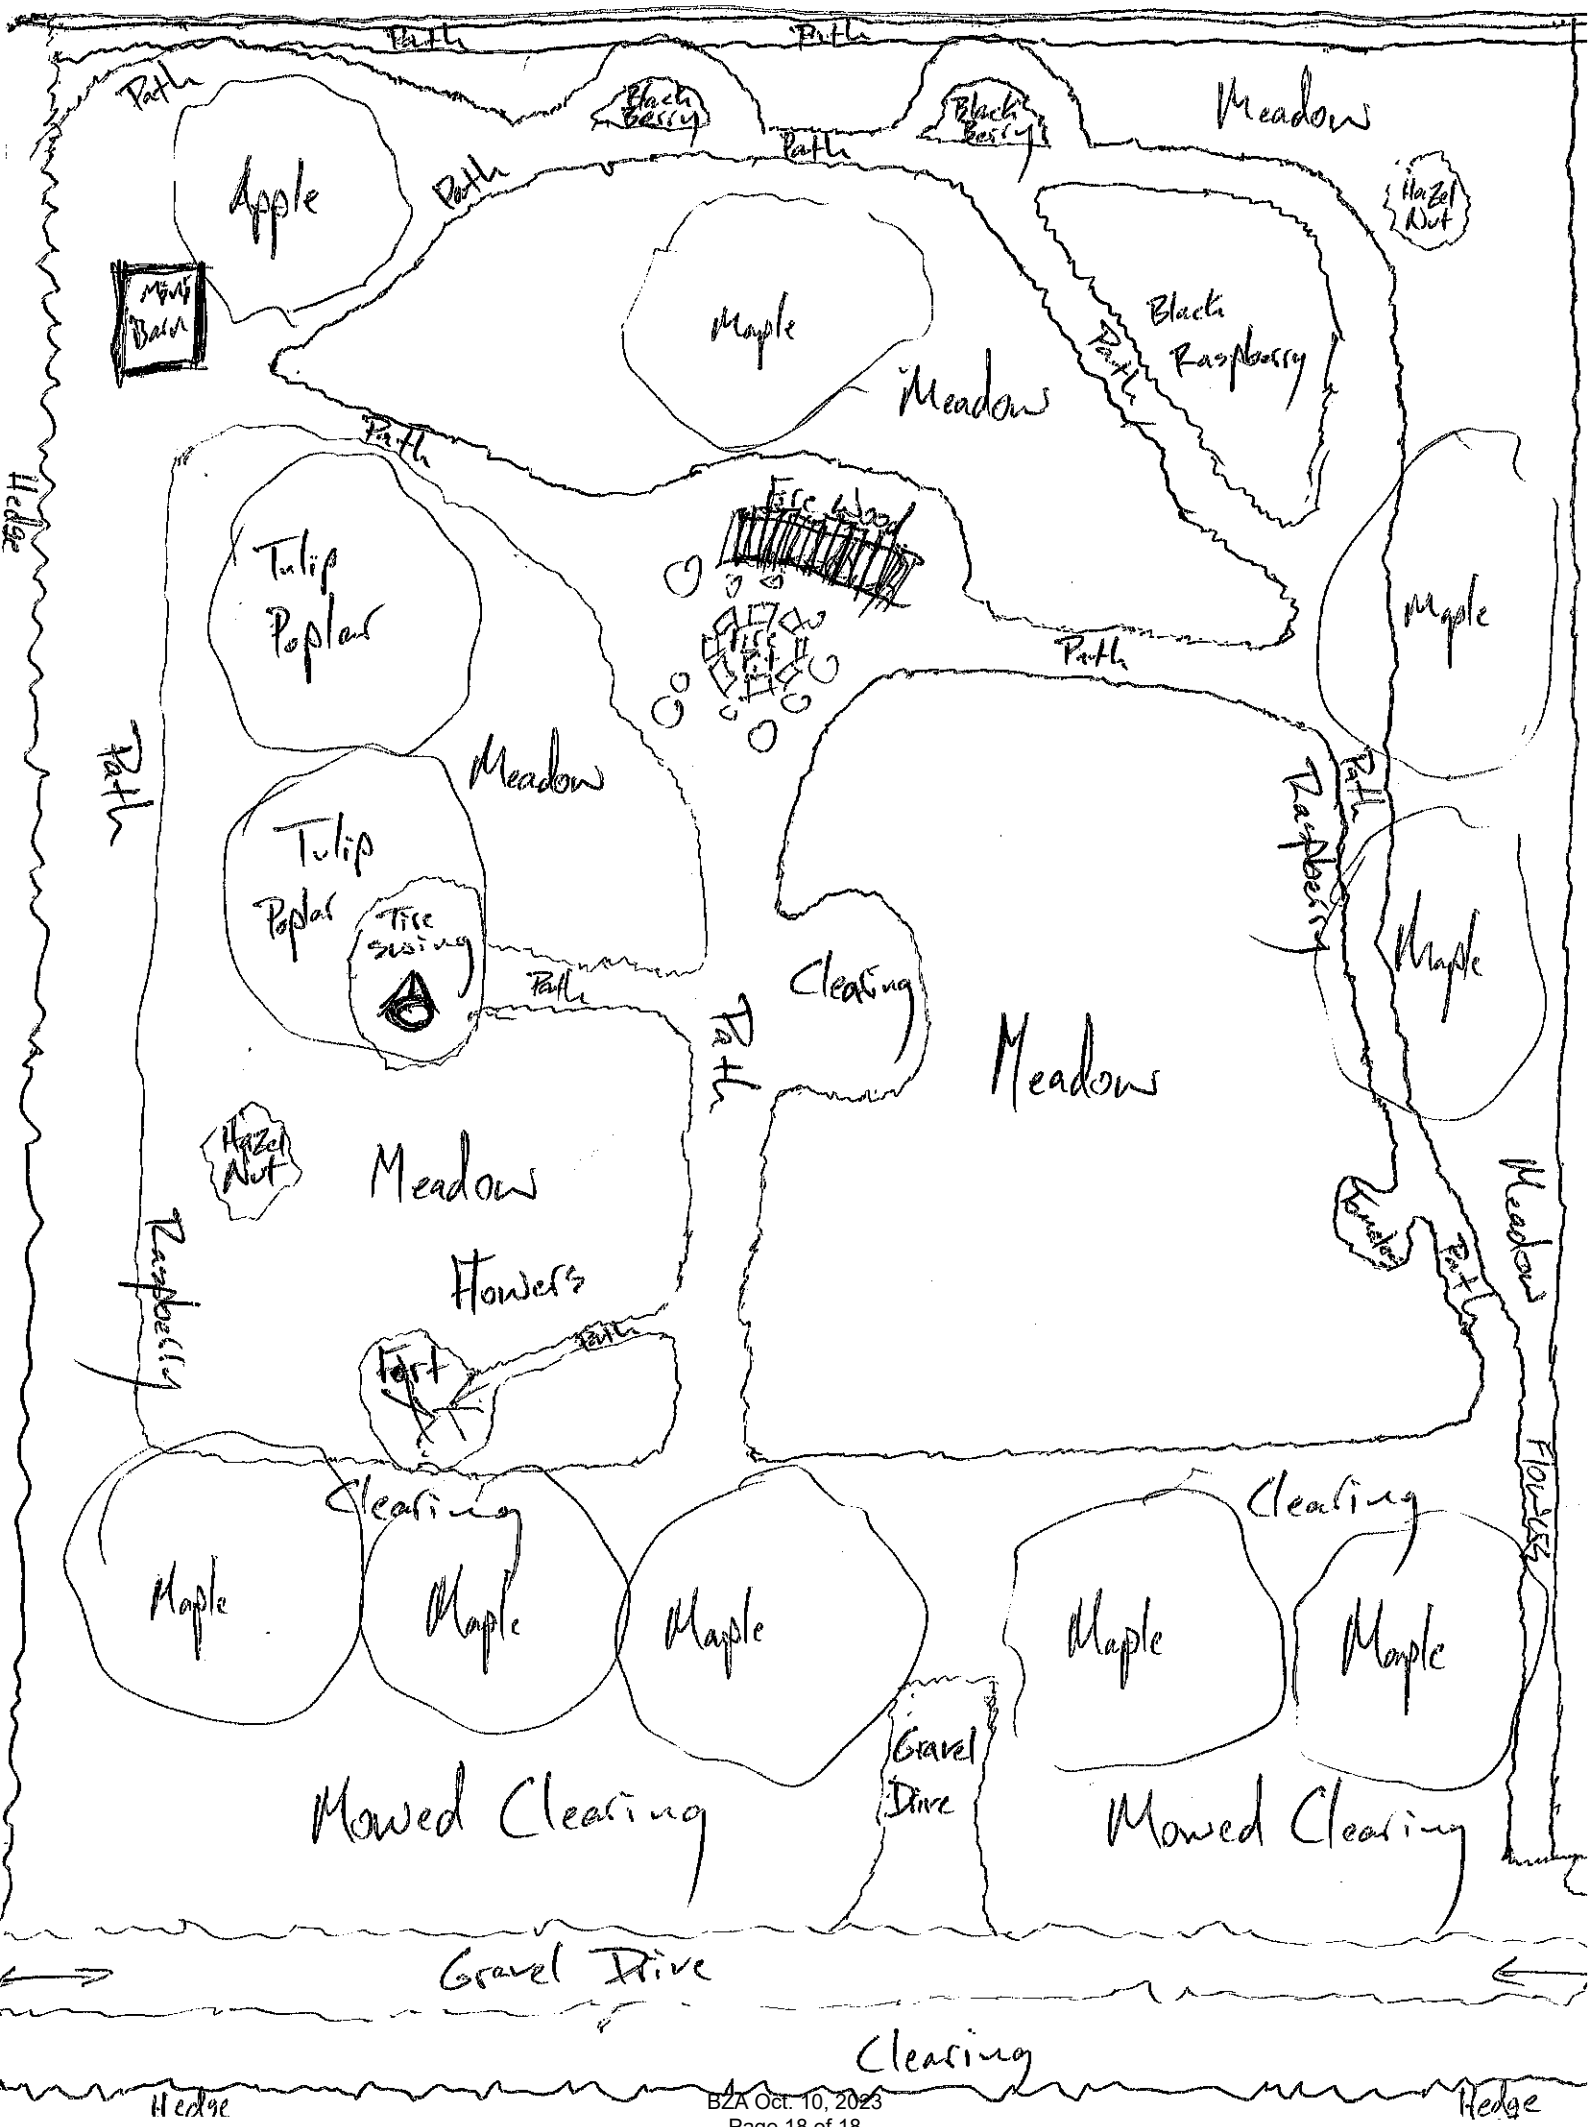 Path
Path
Path
Black
Berry
Black
Berry
Meadow
Path
Path
Hazel
Nut
Apple
Mini
Barn
Maple
Black
Raspberry
Path
Meadow
Path
Hedge
Fire Wood
Tulip
Poplar
Fire
Pit
Maple
Path
Path
Meadow
Path
Raspberry
Tulip
Poplar
Tire
swing
Path
Clearing
Maple
Path
Meadow
Hazel
Nut
Meadow
Meadow
Raspberry
Flowers
Path
Path
Fort
Flowers
Clearing
Clearing
Maple
Maple
Maple
Maple
Maple
Gravel
Drive
Mowed Clearing
Mowed Clearing
Gravel Drive
Clearing
Hedge
Hedge
BZA Oct. 10, 2023
Page 18 of 18